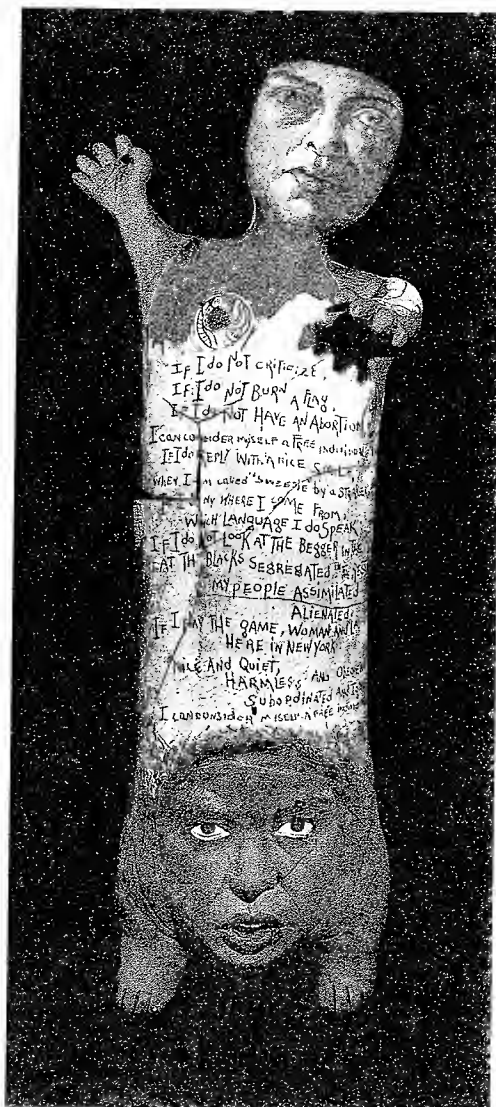 If I do NOT CRITICIZE,
If I do NOT BURN A FLAG,
If I do NOT HAVE AN ABORTION
I CAN CONSIDER MYSELF A FREE
If I do REPLY WITH A NICE SMILE
WHEN I AM CALLED "SWEETIE" BY A STRANGER
NY WHERE I COME FROM,
WICH LANGUAGE I do SPEAK
IF I do NOT LOOK AT THE BEGGER IN THE
AT TH BLACKS SEGREGATED
MY PEOPLE ASSIMILATED
ALIENATED.
IF I PLAY THE GAME, WOMAN AND
HERE IN NEW YORK
NICE AND QUIET,
HARMLESS AND
SUBORDINATED AND
I CAN CONSIDER MISELF A FREE